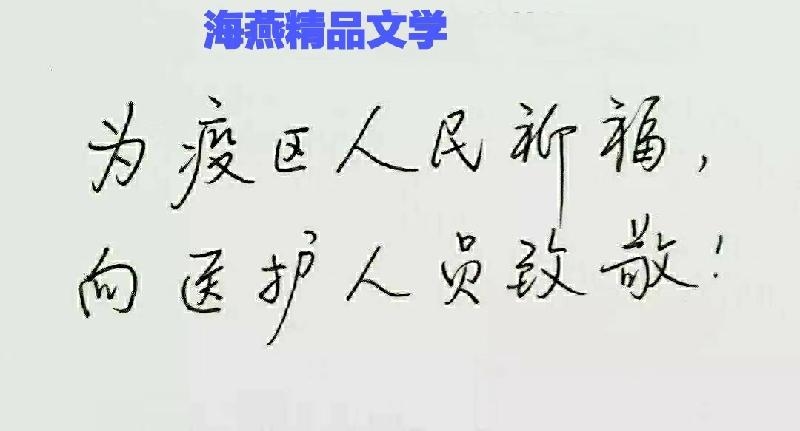 海燕精品文学
为疫区人民祈福，
向医护人员致敬！